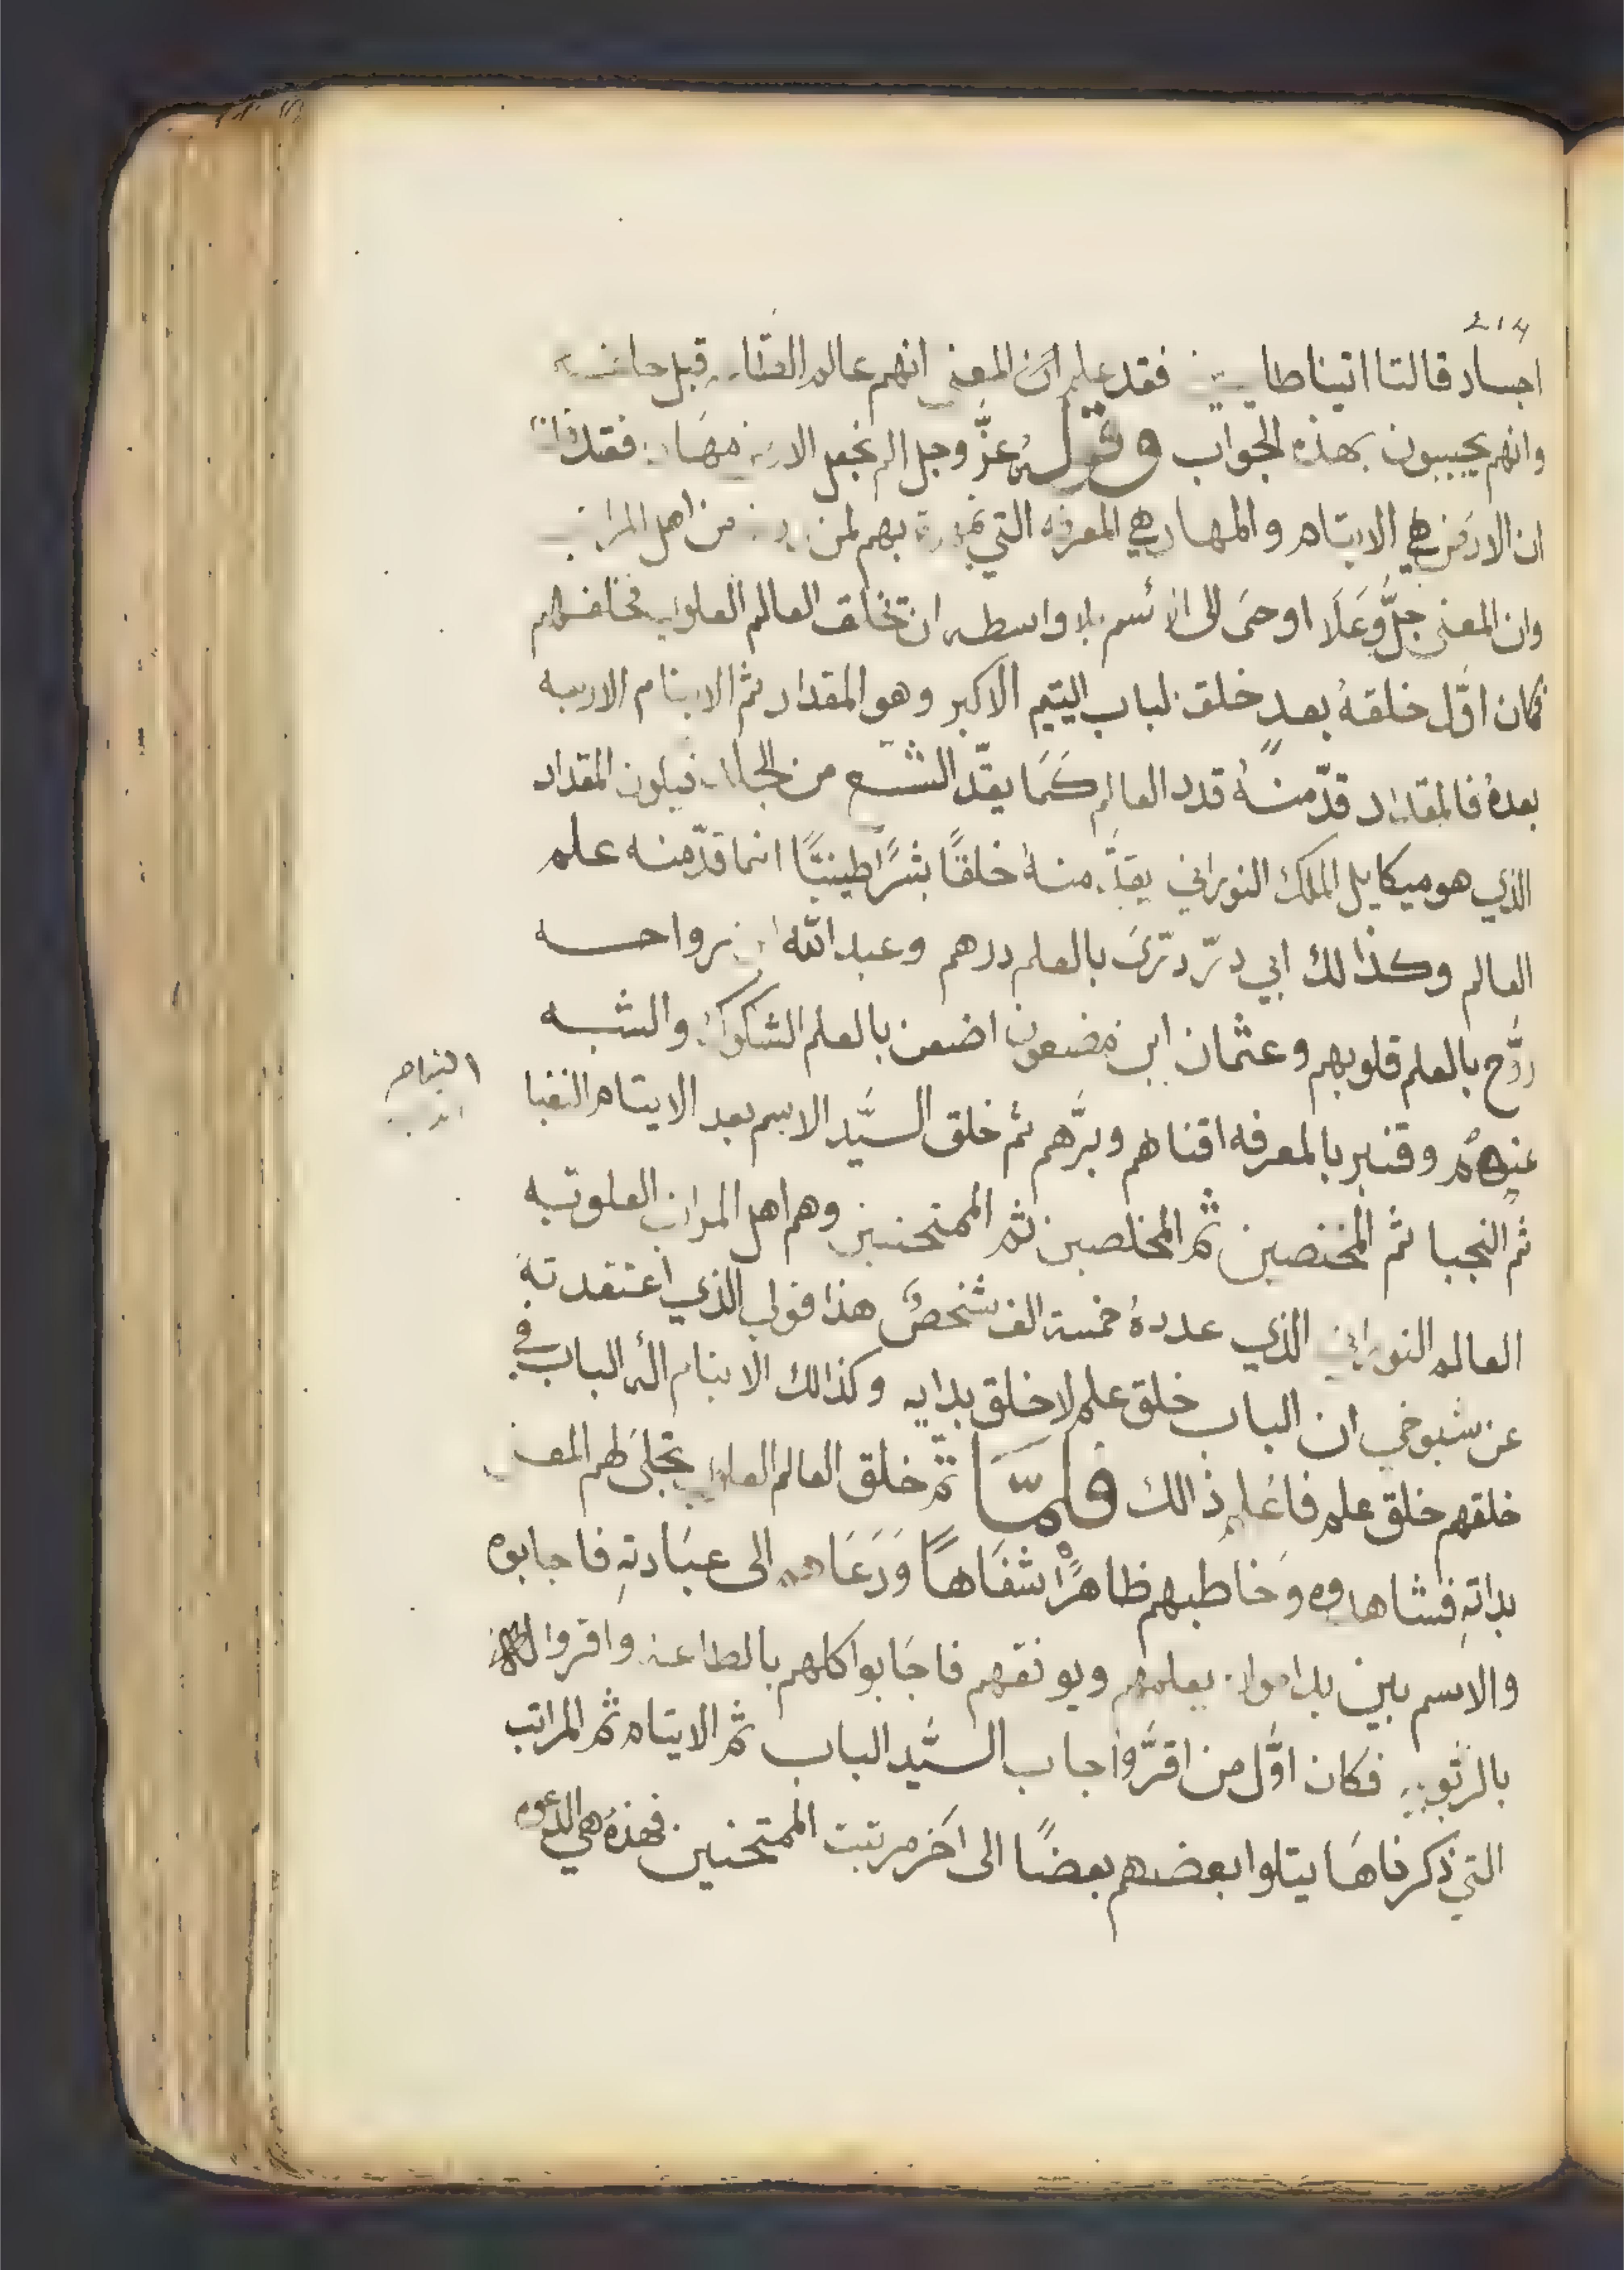 214
اجساد قالتا اتينا فقد علم ان المعنى انهم عالم قبل
وانهم يجيبون بهذه الجواب وقوله عزَّ وجل الم نجعل فقد
ان الارض هي الايتام والمهاد هي المعرفه التي بهم لمن من اهل
وان المعنى جلَّ وَعَلَا اوحىَ الى الأسم بلا واسطه ان تخلق العالم العلوي فخلقهم
فكان اوَّل خلقهُ بعد خلق لباب اليتيم الأكبر وهو المقداد ثم الايتام الاربعه
بعدهُ فالمقداد قدّ منهُ قدد العالم كَمَا يقدّ من فيكون المقداد
الذي هو ميكايل الملك النوراني يقدّ منهُ خلقًا بشرًا طينيًّا انما قدّ منه علم
العالم وكذالك ابي درّ درّىَ بالعلم دردهم وعبد الله رواحه
روَّح بالعلم قلوبهم وعثمان ابن مضعون اضعن بالعلم الشكوك والشبه
عنهُم وقنبر بالمعرفه اقناهم وبرَّهم ثم خلق السيَّد الاسم بعد الايتام النقبا
ثم النجبا ثم المختصين ثم المخلصين ثم الممتحنين وهم اهل المراتب العلويه
العالم النوراني الذي عددهُ خمسة الف شخصٌ هذا قولي الذي اعتقدته
عن شيوخي ان الباب خلق علم لا خلق بدايه وكذالك الايتام الباب في
خلقهم خلق علم فاعلم ذالك فلمّا تمّ خلق العالم العلوي تجلىَ لهم المعنى
بذاتهِ فشاهدوه وَخاطبهم ظاهرًا شفَاهًا وَدَعَاهم الى عبَادتهِ فاجابوه
والاسم بين يعلمهم ويوثقهم فاجَابوا كلهم بالطاعه واقروا
فكان اوَّل من اقرَّ واجاب السيَّد الباب ثم الايتام ثم المراتب
التي ذكرناهَا يتلوا بعضهم بعضًا الى اَخر مرتبت الممتحنين فهذهُ هي الدعوه